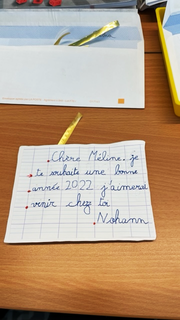 Chère Méline, je
te souhaite une bonne
année 2022 j'aimerai
venir chez toi
Nohann